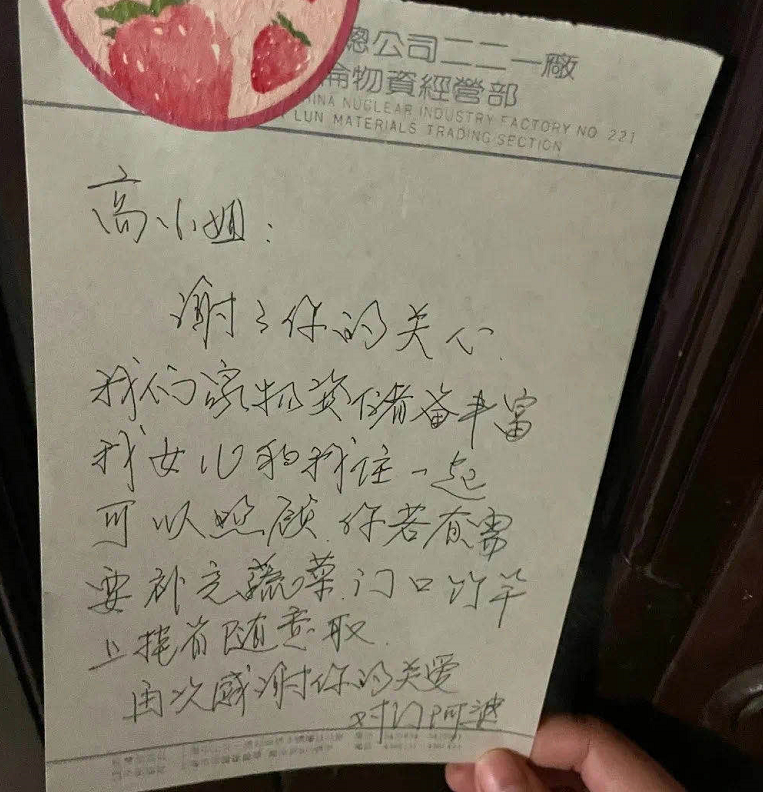 總公司二二一廠
物資經營部
NUCLEAR INDUSTRY FACTORY NO 221
LUN MATERIALS TRADING SECTION
高小姐：
谢々你的关心.
我们家物资储备丰富
我女儿和我住一起
可以照顾.你若有需
要补充蔬菜.门口竹竿
上挂着随意取.
再次感谢你的关爱
对门阿婆